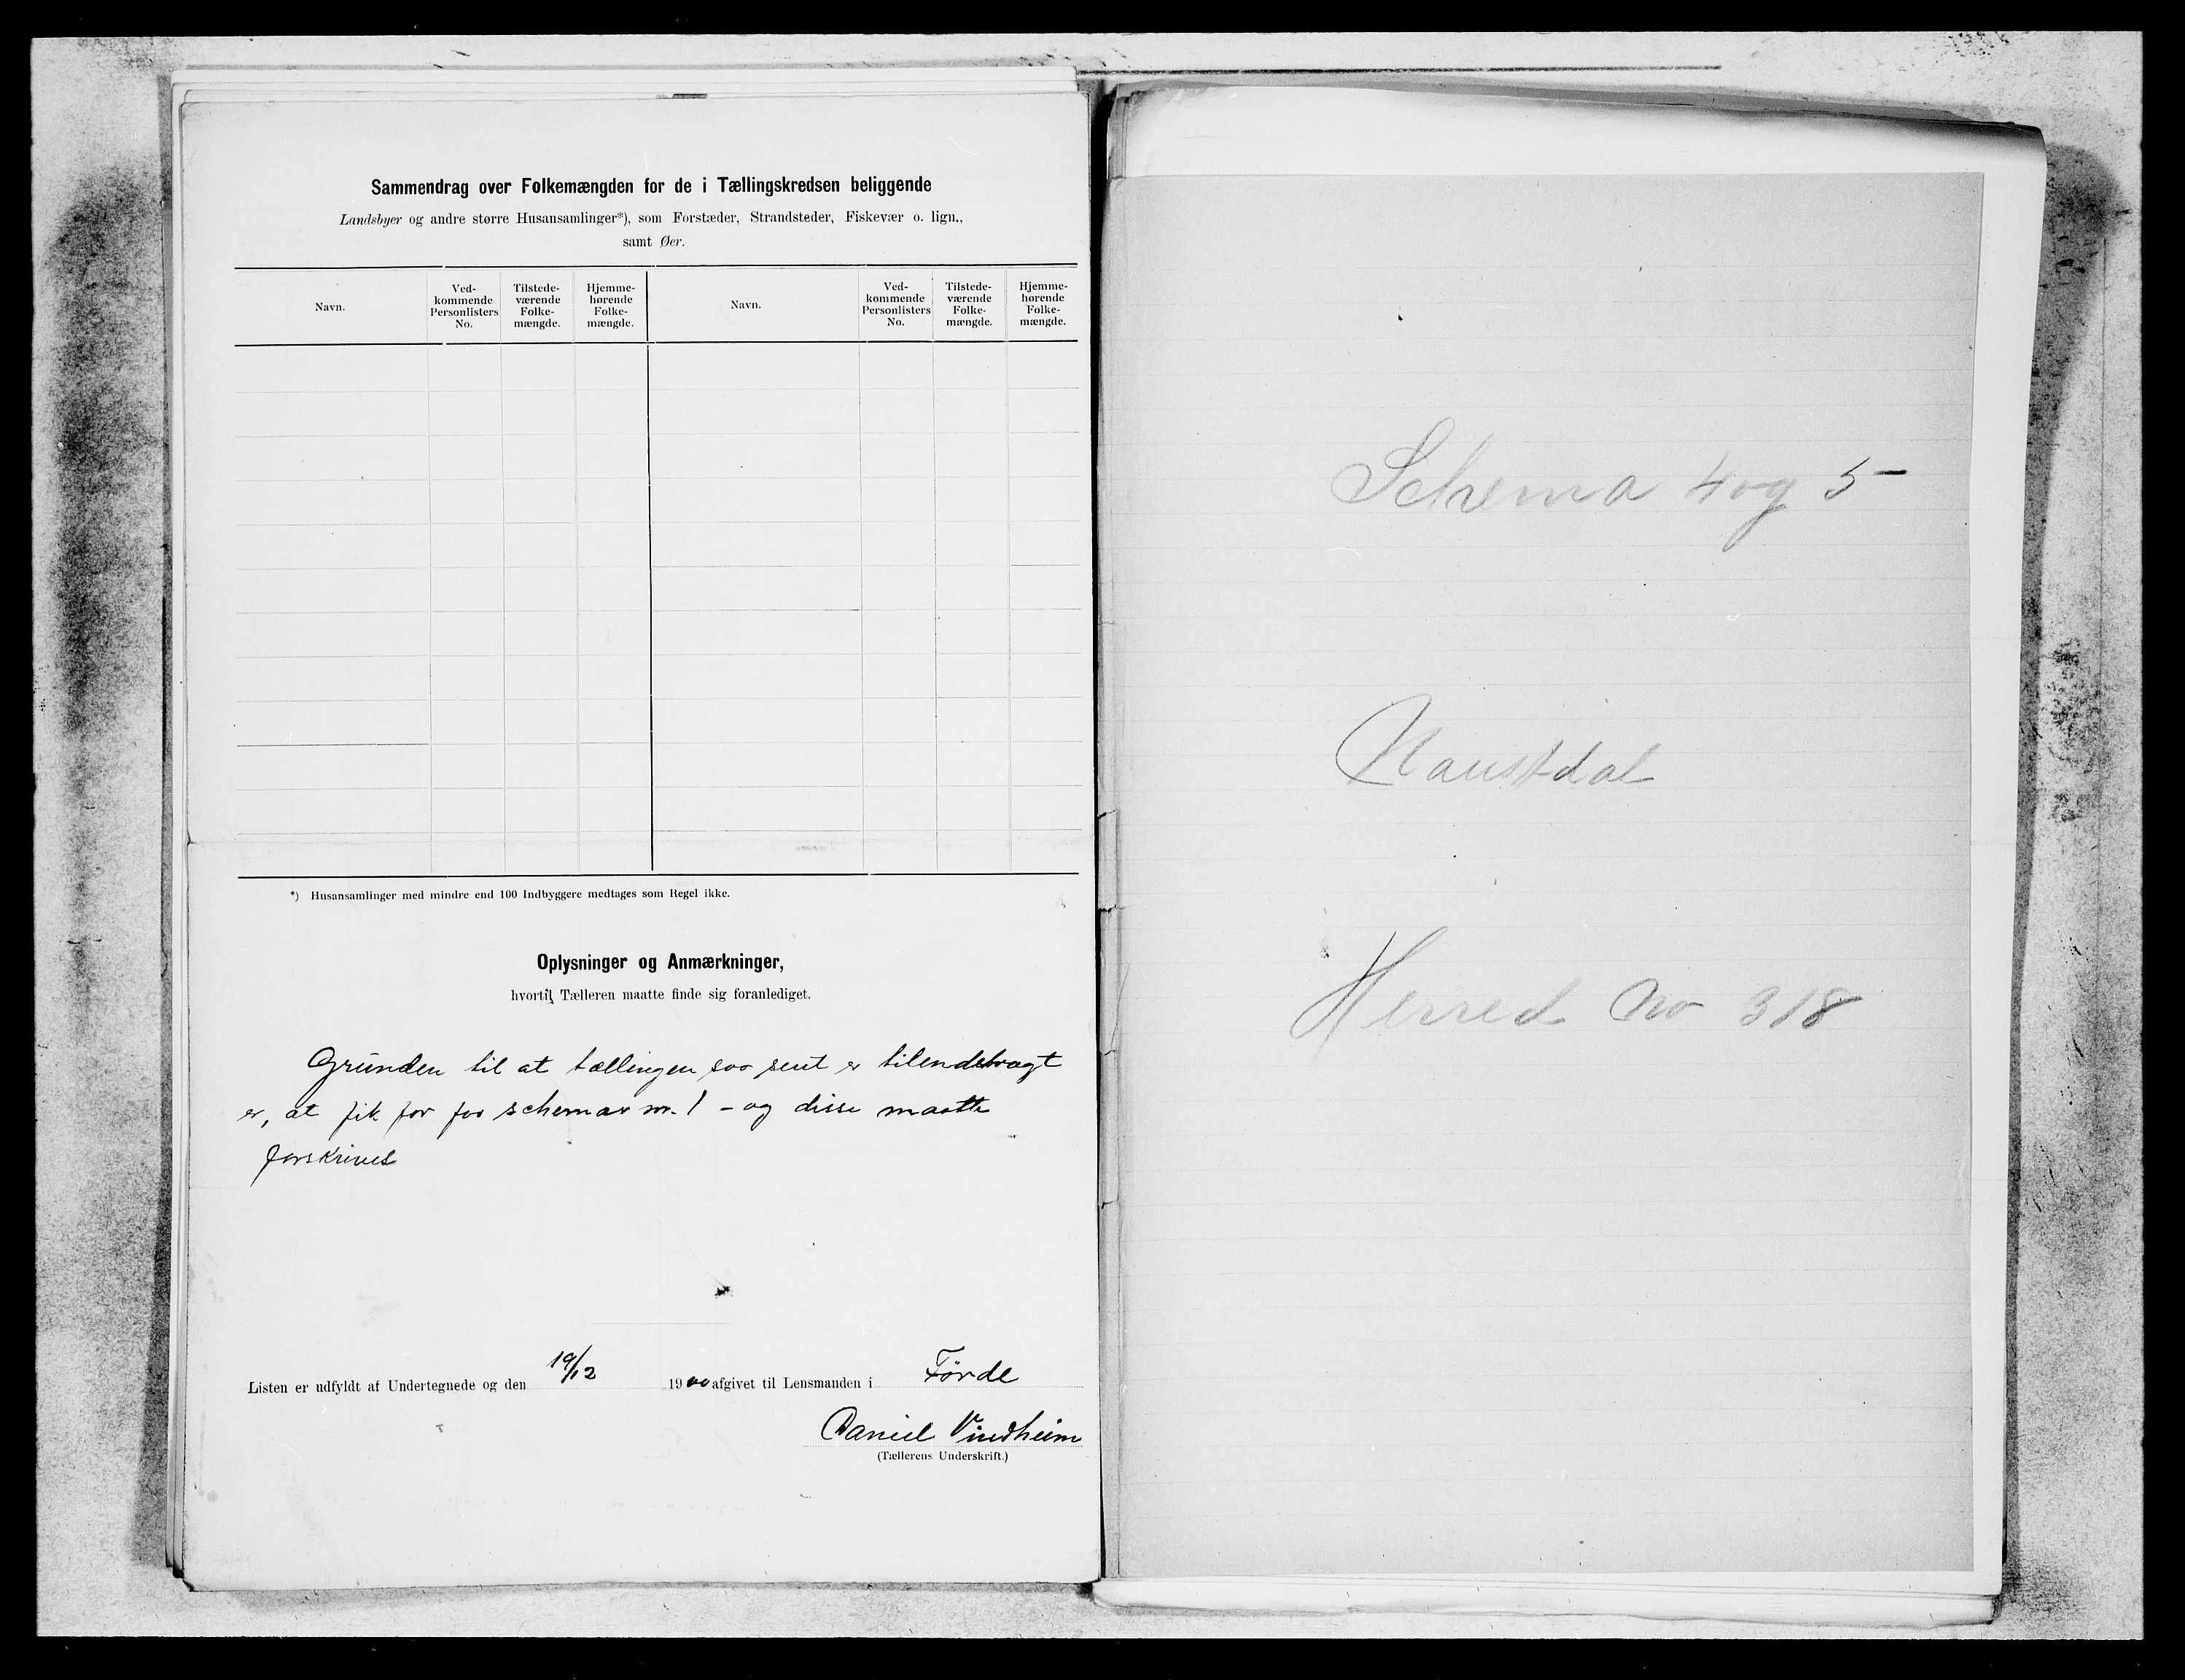 Sammendrag over Folkemængden for de i Tællingskredsen beliggende
Landsbyer og andre større Husansamlinger*), som Forstæder, Strandsteder, Fiskevær o. lign.,
samt Øer.
Navn.
Ved-
kommende
Personlisters
No.
Tilstede-
værende
Folke-
mængde.
Hjemme-
hørende
Folke-
mængde.
Navn.
Ved-
kommende
Personlisters
No.
Tilstede-
værende
Folke-
mængde.
Hjemme-
hørende
Folke-
mængde.
*) Husansamlinger med mindre end 100 Indbyggere medtages som Regel ikke.
Oplysninger og Anmærkninger,
hvortil Tælleren maatte finde sig foranlediget.
Grunden til at tællingen saa sent er tilendebragt
er, at fik for faa schemar nr. 1 - og disse maatte
forskrives
Listen er udfyldt af Undertegnede og den 19/12 1900 afgivet til Lensmanden i Førde
Daniel Vindheim
(Tællerens Underskrift.)
Schema 4 og 5
Naustdal
Herred No 318